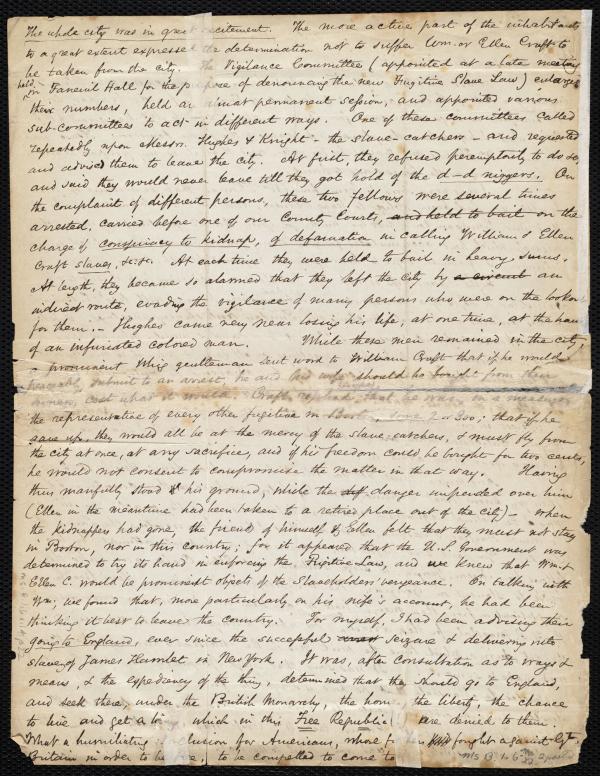 The whole city was in great excitement. The more active part of the inhabitants
to a great extent expressed the determination not to suffer Wm. or Ellen Craft to
be taken from the city. The Vigilance Committee (appointed at a late meeting
held in Faneuil Hall for the purpose of denouncing the new Fugitive Slave Law) enlarged
their numbers, held an almost permanent session, and appointed various
sub-committees to act in different ways. One of these committees called
repeatedly upon Messrs. Hughes & Knight - the slave-catchers - and requested
and advised them to leave the city. At first, they refused peremptorily to do so,
and said they would never leave till they got hold of the d--d niggers. On
the complaint of different persons, these two fellows were several times
arrested, carried before one of our County Courts, and held to bail on the
charge of conspiracy to kidnap, of defamation in calling William & Ellen
Craft slaves, &c. &c. At each time they were held to bail in heavy sums.
At length, they became so alarmed that they left the city by a circuit an
indirect route, evading the vigilance of many persons who were on the look out
for them. - Hughes came very near losing his life, at one time, at the hand
of an infuriated colored man. While these men remained in the city,
a prominent Whig gentleman sent word to William Craft that if he would
peaceably submit to an arrest, he and his wife should be bought from their
owners, cost what it would. Craft replied that he was, in a measure
the representative of every other fugitive in Boston, some 2 or 300; that if he
gave up, they would all be at the mercy of the slave-catchers, & must fly from
the city at once, at any sacrifice, and if his freedom could be bought for two cents,
he would not consent to compromise the matter in that way. Having
thus manfully stood his ground, while the danger impended over him
(Ellen in the meantime had been taken to a retired place out of the city) - when
the kidnappers had gone, the friends of himself & Ellen felt that they must not stay
in Boston, nor in this country; for it appeared that the U.S. Government was
determined to try its hand in enforcing the Fugitive Law, and we knew that Wm. &
Ellen C. would be prominent objects of the Slaveholders' vengeance. On talking with
Wm., we found that, more particularly on his wife's account, he had been
thinking it best to leave the country. For myself, I had been advising their
going to England, ever since the successful seizure & delivering into
slavery of James Hamlet in New York. It was, after consultation as to ways &
means, & the expediency of the thing, determined that they should go to England,
and seek there, under the British Monarchy, the home, the liberty, the chance
to live and get a living, which in this Free Republic (!) are denied to them.
What a humiliating conclusion for Americans, whose fathers fought against Gt.
Britain in order to be free, to be compelled to come to